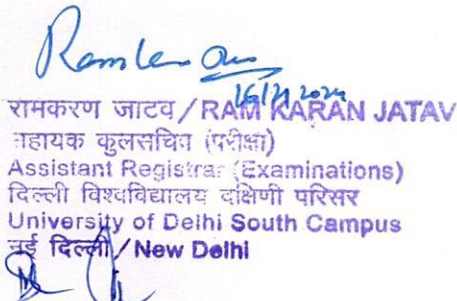 रामकरण जाटव / RAM KARAN JATAV
सहायक कुलसचिव (परीक्षा)
Assistant Registrar (Examinations)
दिल्ली विश्वविद्यालय दक्षिणी परिसर
University of Delhi South Campus
नई दिल्ली / New Delhi